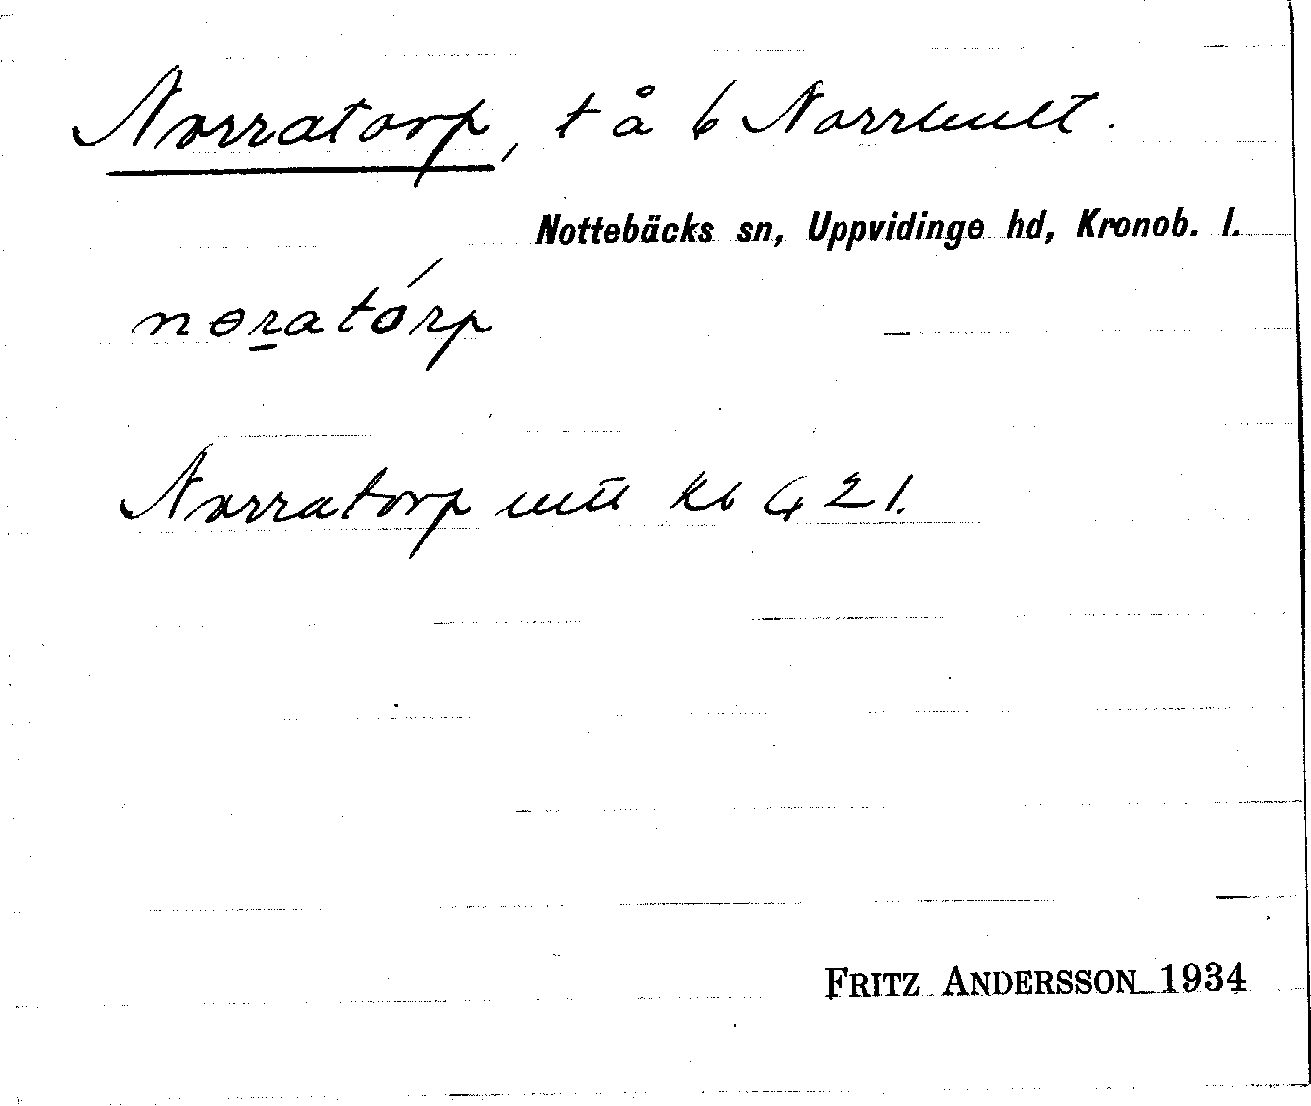 Norratorp, t å b Norrhult.
Nottebäcks sn, Uppvidinge hd, Kronob. l.
nɵratórp
Norratorp kb 421.
FRITZ ANDERSSON 1934